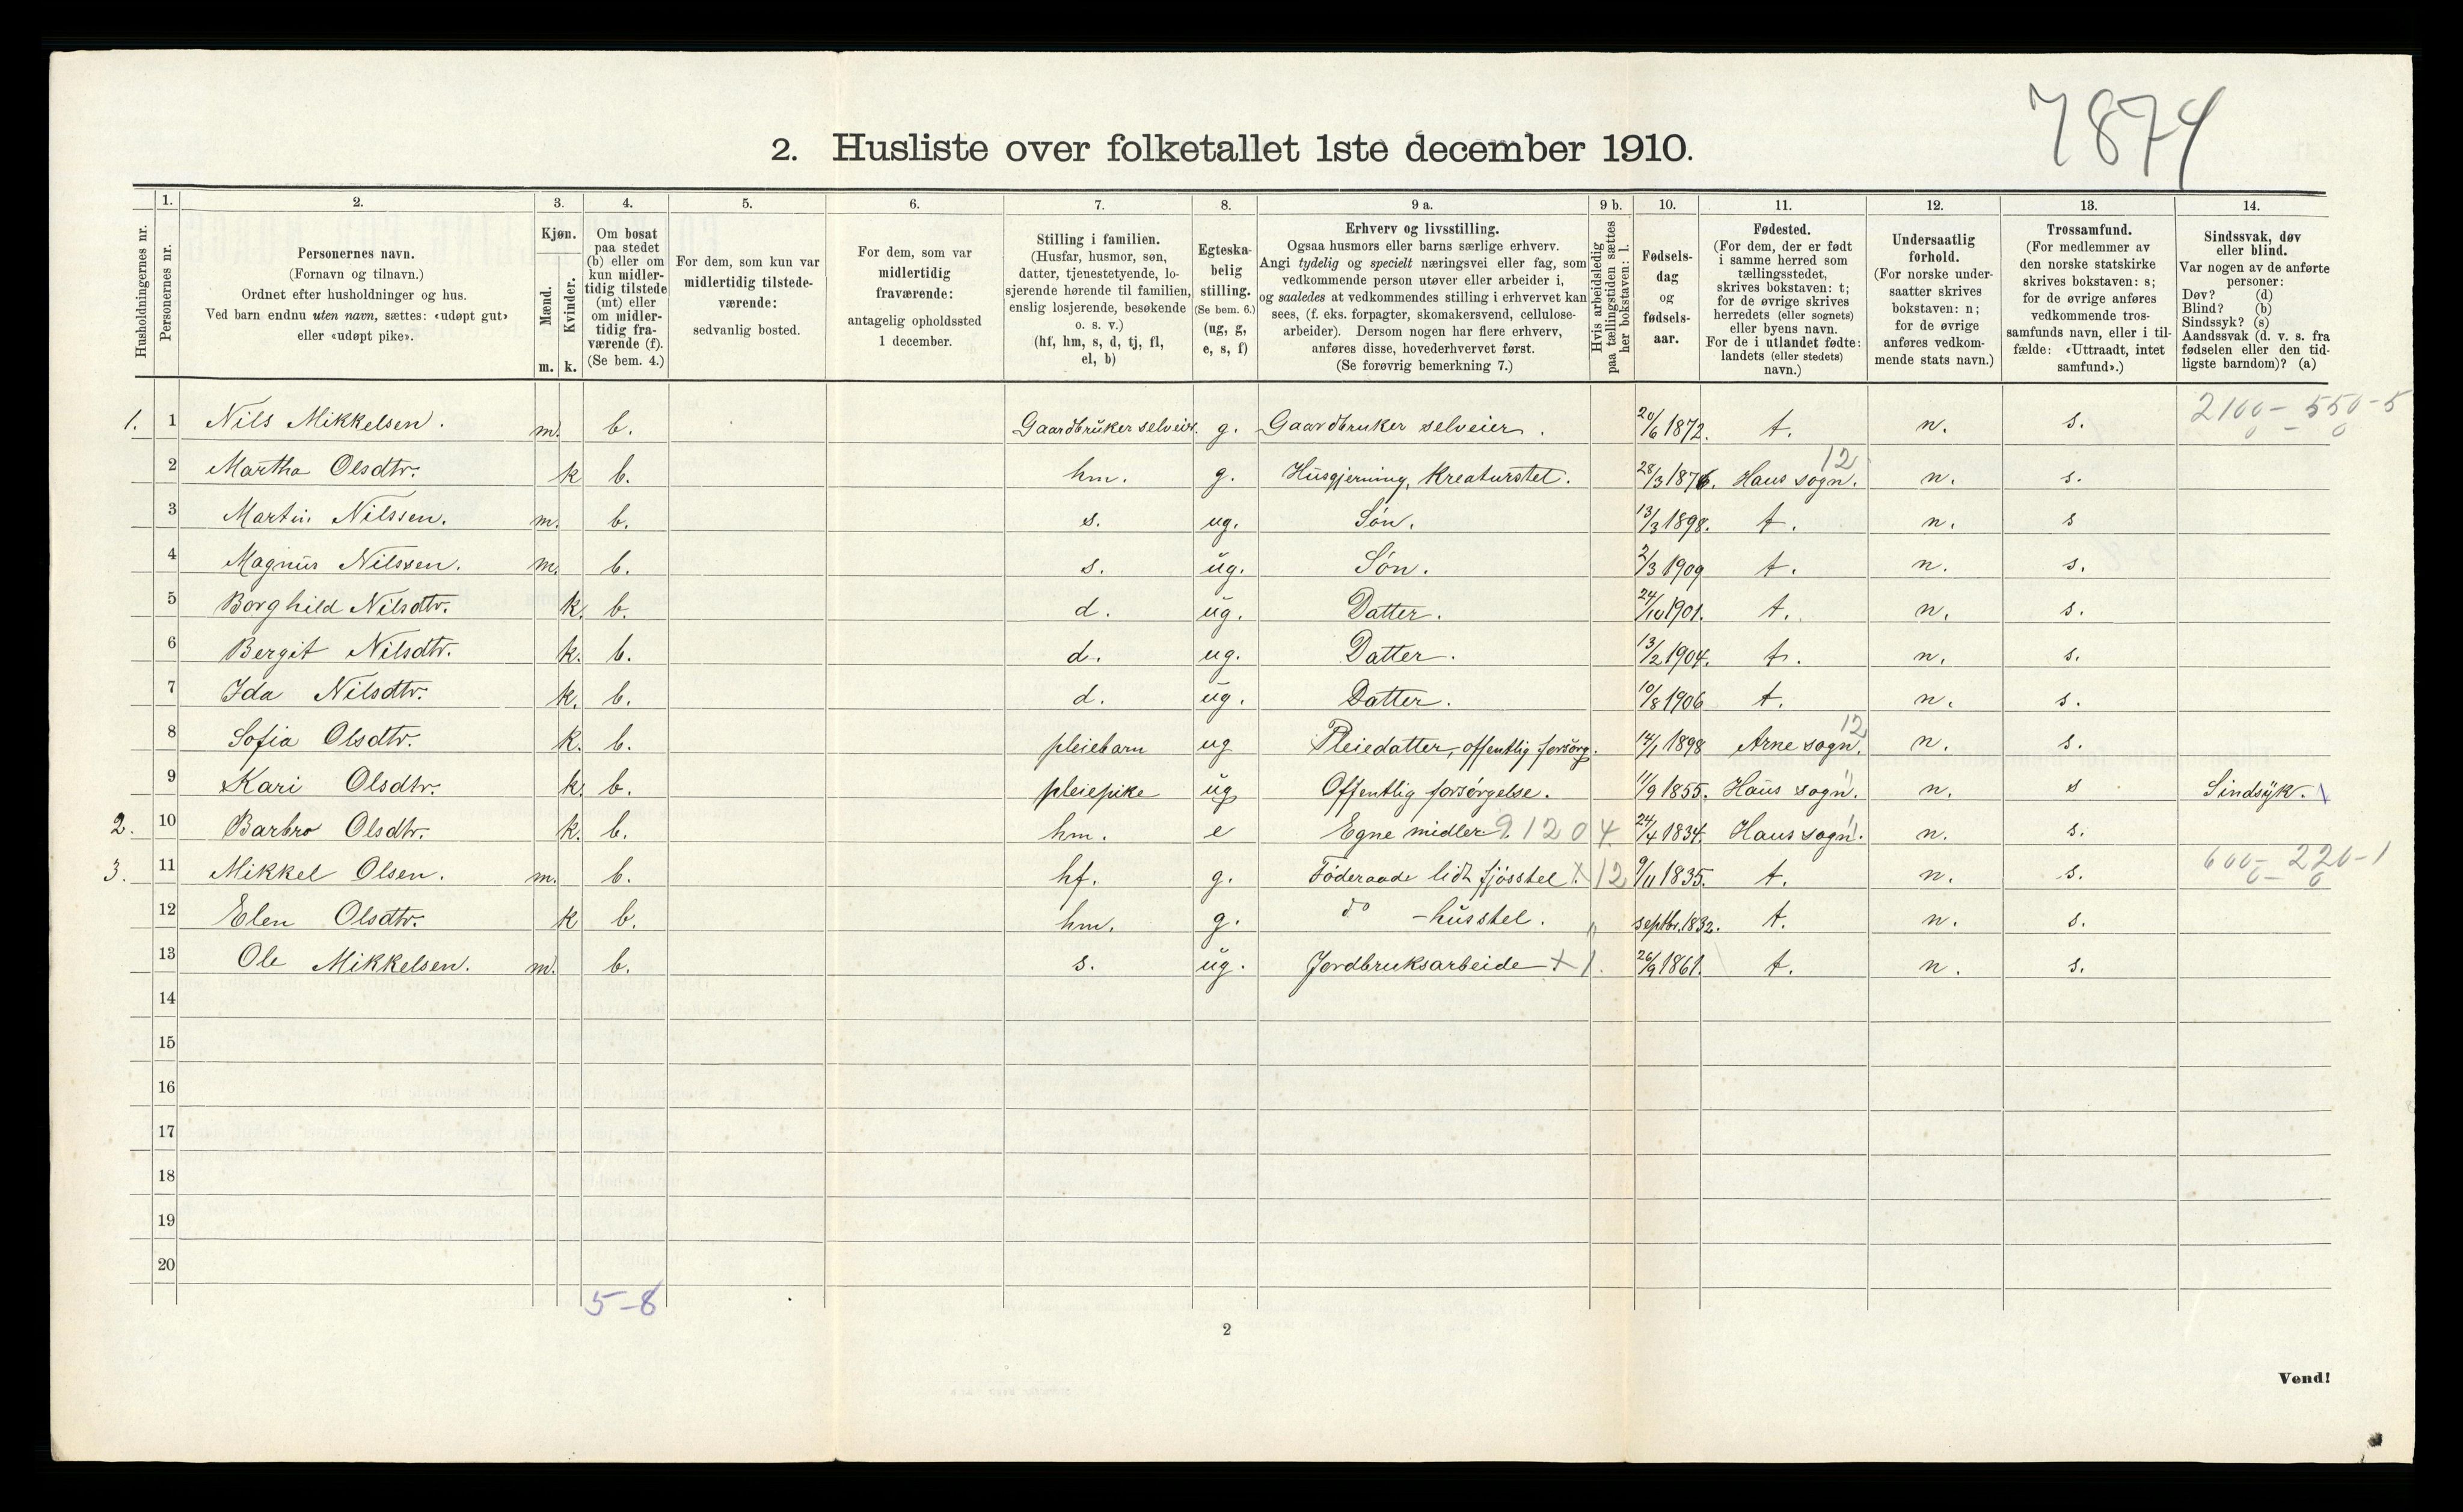 7874
2. Husliste over folketallet 1ste december 1910.
1. 2. 3. 4. 5. 6. 7. 8. 9 a. 9 b. 10. 11. 12. 13. 14.
Husholdningernes nr.
Personernes nr.
Personernes navn.
(Fornavn og tilnavn.)
Ordnet efter husholdninger og hus.
Ved barn endnu uten navn, sættes: «udøpt gut»
eller «udøpt pike».
Kjøn.
Mænd.
Kvinder.
m. k.
Om bosat
paa stedet
(b) eller om
kun midler-
tidig tilstede
(mt) eller
om midler-
tidig fra-
værende (f).
(Se bem. 4.)
For dem, som kun var
midlertidig tilstede-
værende:
sedvanlig bosted.
For dem, som var
midlertidig
fraværende:
antagelig opholdssted
1 december.
Stilling i familien.
(Husfar, husmor, søn,
datter, tjenestetyende, lo-
sjerende hørende til familien,
enslig losjerende, besøkende
o. s. v.)
(hf, hm, s, d, tj, fl,
el, b)
Egteska-
belig
stilling.
(Se bem. 6.)
(ug, g,
e, s, f)
Erhverv og livsstilling.
Ogsaa husmors eller barns særlige erhverv.
Angi tydelig og specielt næringsvei eller fag, som
vedkommende person utøver eller arbeider i,
og saaledes at vedkommendes stilling i erhvervet kan
sees, (f. eks. forpagter, skomakersvend, cellulose-
arbeider). Dersom nogen har flere erhverv,
anføres disse, hovederhvervet først.
(Se forøvrig bemerkning 7.)
Hvis arbeidsledig
paa tællingstiden sættes
her bokstaven: l.
Fødsels-
dag
og
fødsels-
aar.
Fødested.
(For dem, der er født
i samme herred som
tællingsstedet,
skrives bokstaven: t;
for de øvrige skrives
herredets (eller sognets)
eller byens navn.
For de i utlandet fødte:
landets (eller stedets)
navn.)
Undersaatlig
forhold.
(For norske under-
saatter skrives
bokstaven: n;
for de øvrige
anføres vedkom-
mende stats navn.)
Trossamfund.
(For medlemmer av
den norske statskirke
skrives bokstaven: s;
for de øvrige anføres
vedkommende tros-
samfunds navn, eller i til-
fælde: «Uttraadt, intet
samfund».)
Sindssvak, døv
eller blind.
Var nogen av de anførte
personer:
Døv? (d)
Blind? (b)
Sindssyk? (s)
Aandssvak (d. v. s. fra
fødselen eller den tid-
ligste barndom)? (a)
1. 1 Nils Mikkelsen. m. b. Gaardbruker selveier. g. Gaardbruker selveier. 20/6 1872. t. n. s. 2100 - 550 - 5
2 Martha Olsdtr. k b. hm. g. Husgjerning, Kreaturstel. 28/3 1876. Haus sogn. 12 n. s.
3 Martin Nilssen. m. b. s. ug. Søn. 13/3 1898. t. n. s
4 Magnus Nilssen. m. b. s. ug. Søn. 2/3 1909 t. n. s.
5 Borghild Nilsdtr. k. b. d. ug. Datter. 24/10 1901. t. n. s.
6 Bergit Nilsdtr. k. b. d. ug. Datter. 13/2 1904. t. n. s.
7 Ida Nilsdtr. k. b. d. ug. Datter. 10/8 1906 t. n. s.
8 Sofia Olsdtr. k. b. pleiebarn ug Pleiedatter, offentlig forsørg. 14/1 1898 Arne sogn. 12 n. s.
9 Kari Olsdtr. k. b. pleiepike ug Offentlig forsørgelse. 11/9 1855. Haus sogn. n. s Sindsyk.
2. 10 Barbro Olsdtr. k. b. hm. e Egne midler. 91204 24/4 1834. Haus sogn. n. s.
3. 11 Mikkel Olsen. m. b. hf. g. Føderaade lidt fjøsstel. x 12 9/11 1835. t. n. s. 600 - 220 - 1
12 Elen Olsdtr. k b. hm. g. do - husstel. " septbr. 1832. t. n. s.
13 Ole Mikkelsen. m. b. s. ug. Jordbruksarbeide x 1. 26/9 1861. t. n. s.
14
15
16
17
18
19
20
5-8
2
Vend!